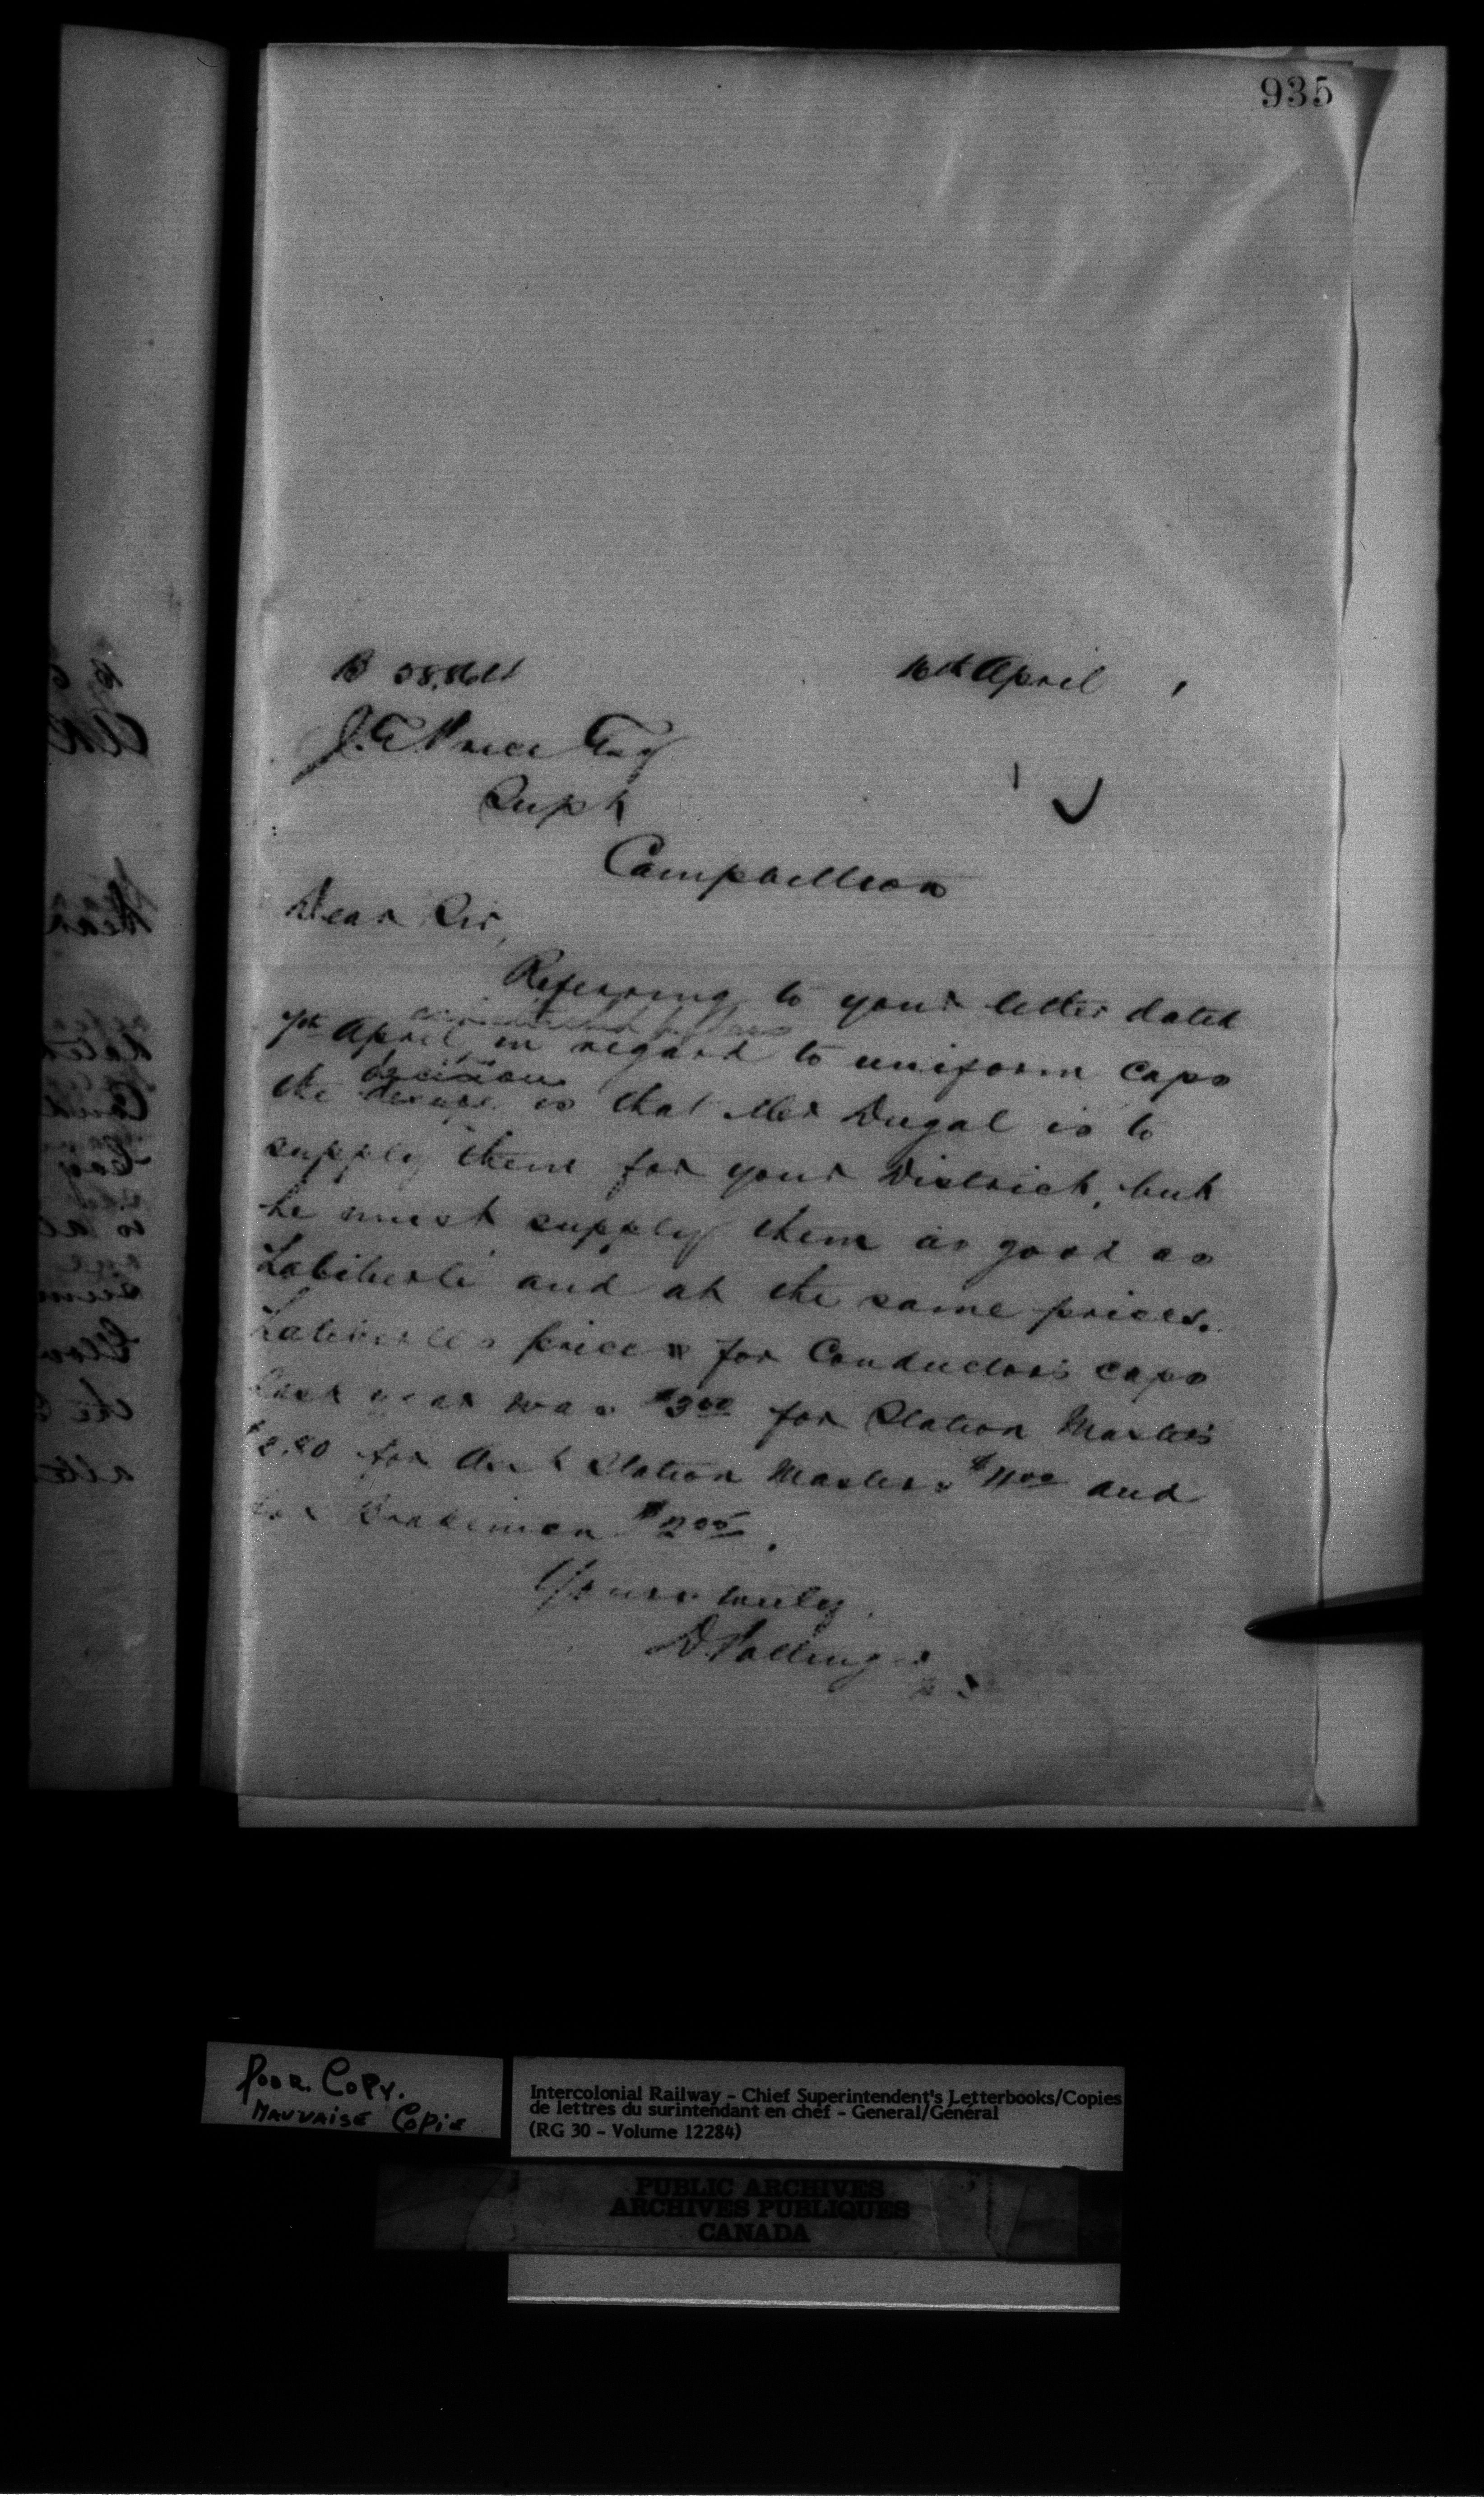 935
16th April
J.E. Price Esq
Supt
Campbellton
Dear Sir,
Referring to your letter dated
7th April in regard to uniform caps
decision
the is that Mr Dugal is to
supply them for your District, but
he must supply them as good as
Laliberté and at the same prices.
Laliberte's price for Conductors caps
last year was $3.00 for Station Masters
for Asst Station Masters and
for Brakemen
Yours truly
D. Pottinger
Poor Copy.
Mauvaise Copie
Intercolonial Railway - Chief Superintendent's Letterbooks/Copies
de lettres du surintendant en chef - General/Général
(RG 30 - Volume 12284)
PUBLIC ARCHIVES
ARCHIVES PUBLIQUES
CANADA